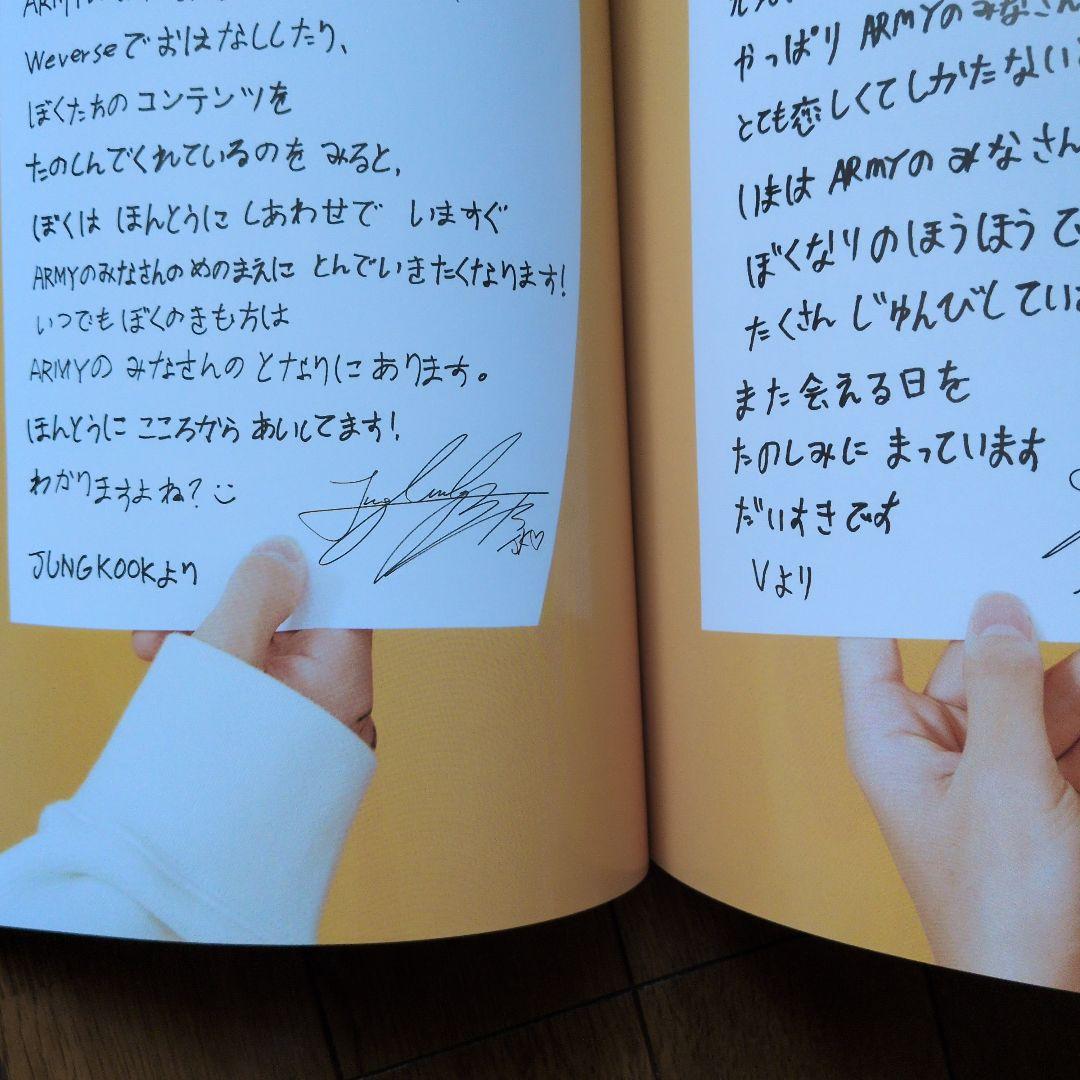 ARMY
Weverseでおはなししたり、
ぼくたちのコンテンツを
たのしんでくれているのを みると、
ぼくは ほんとうに しあわせで いますぐ
ARMYのみなさんの めのまえに とんでいきたくなります!
いつでも ぼくの きも方は
ARMYの みなさんの となりに あります。
ほんとうに こころから あいしてます!
わかりますよね?
JK♡
JUNGKOOKより
やっぱり ARMYの みなさん
とても恋しくて しかたない
いまは ARMYの みなさん
ぼくなりの ほうほう で
たくさん じゅんび してい
また 会える日を
たのしみに まっています
だいすきです
Vより